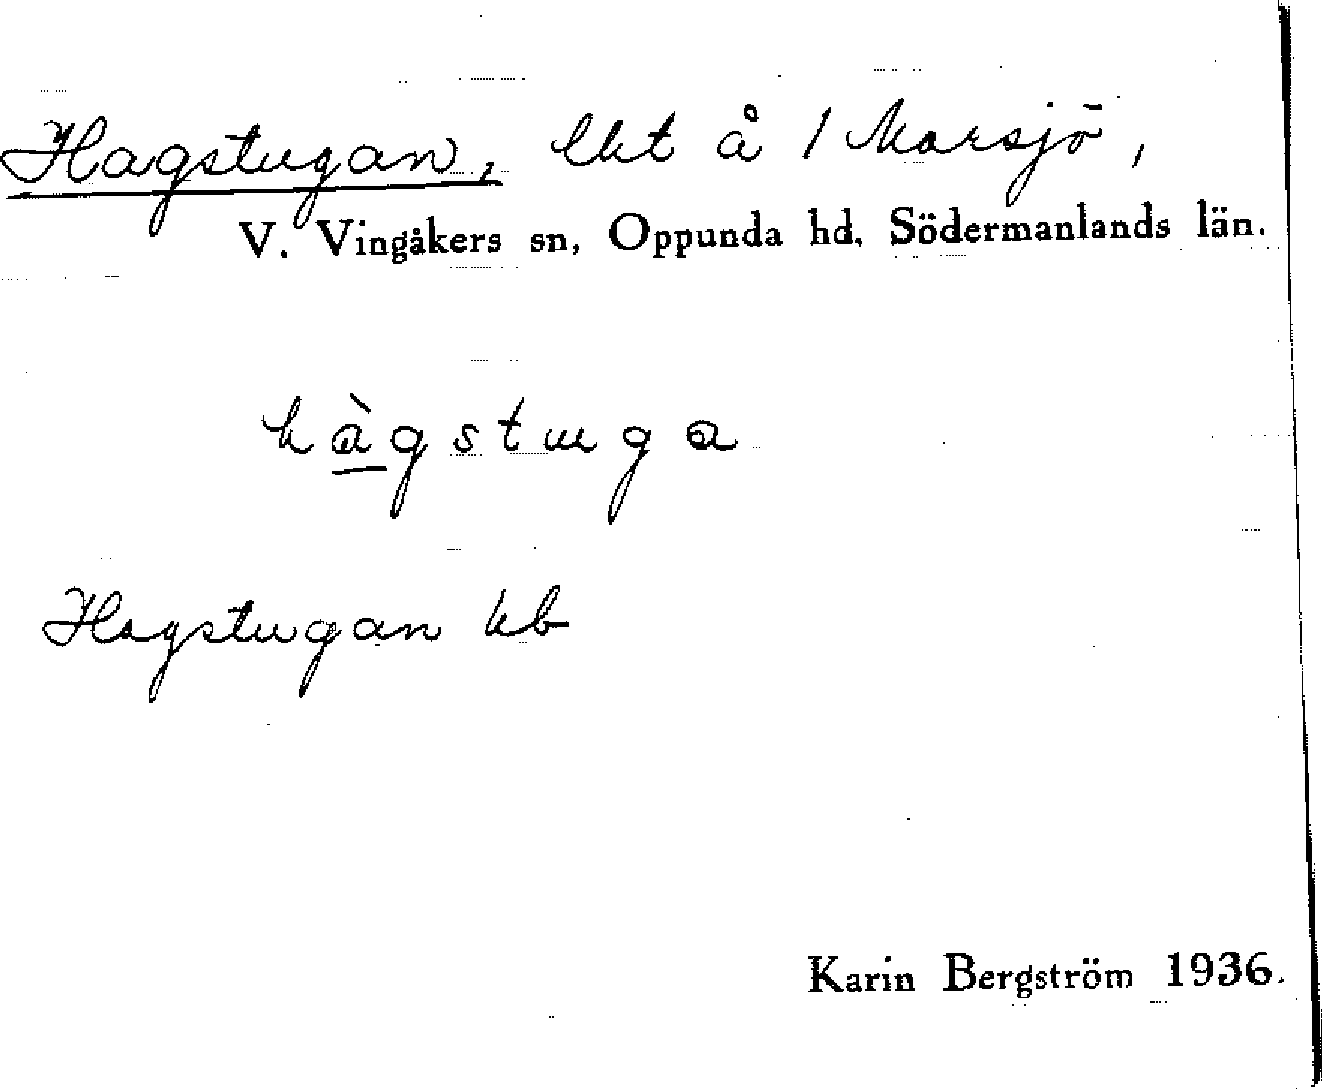 Hagstugan, lht å 1 Marsjö,
V. Vingåkers sn, Oppunda hd, Södermanlands län.
hàgstuga
Hagstugan kb
Karin Bergström 1936.